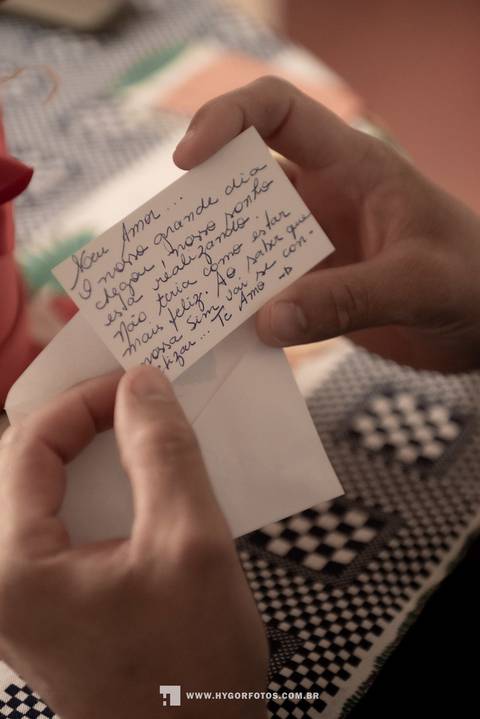 Meu Amor...
O nosso grande dia
chegou, nosso sonho
está realizando.
Não teria como estar
mais feliz. Ao saber que
nossa sim vai se con-
tizar... Te Amo
WWW.HYGORFOTOS.COM.BR